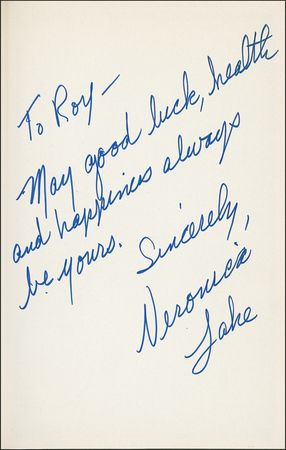 To Roy—
May good luck, health
and happiness always
be yours.
Sincerely,
Veronica
Lake